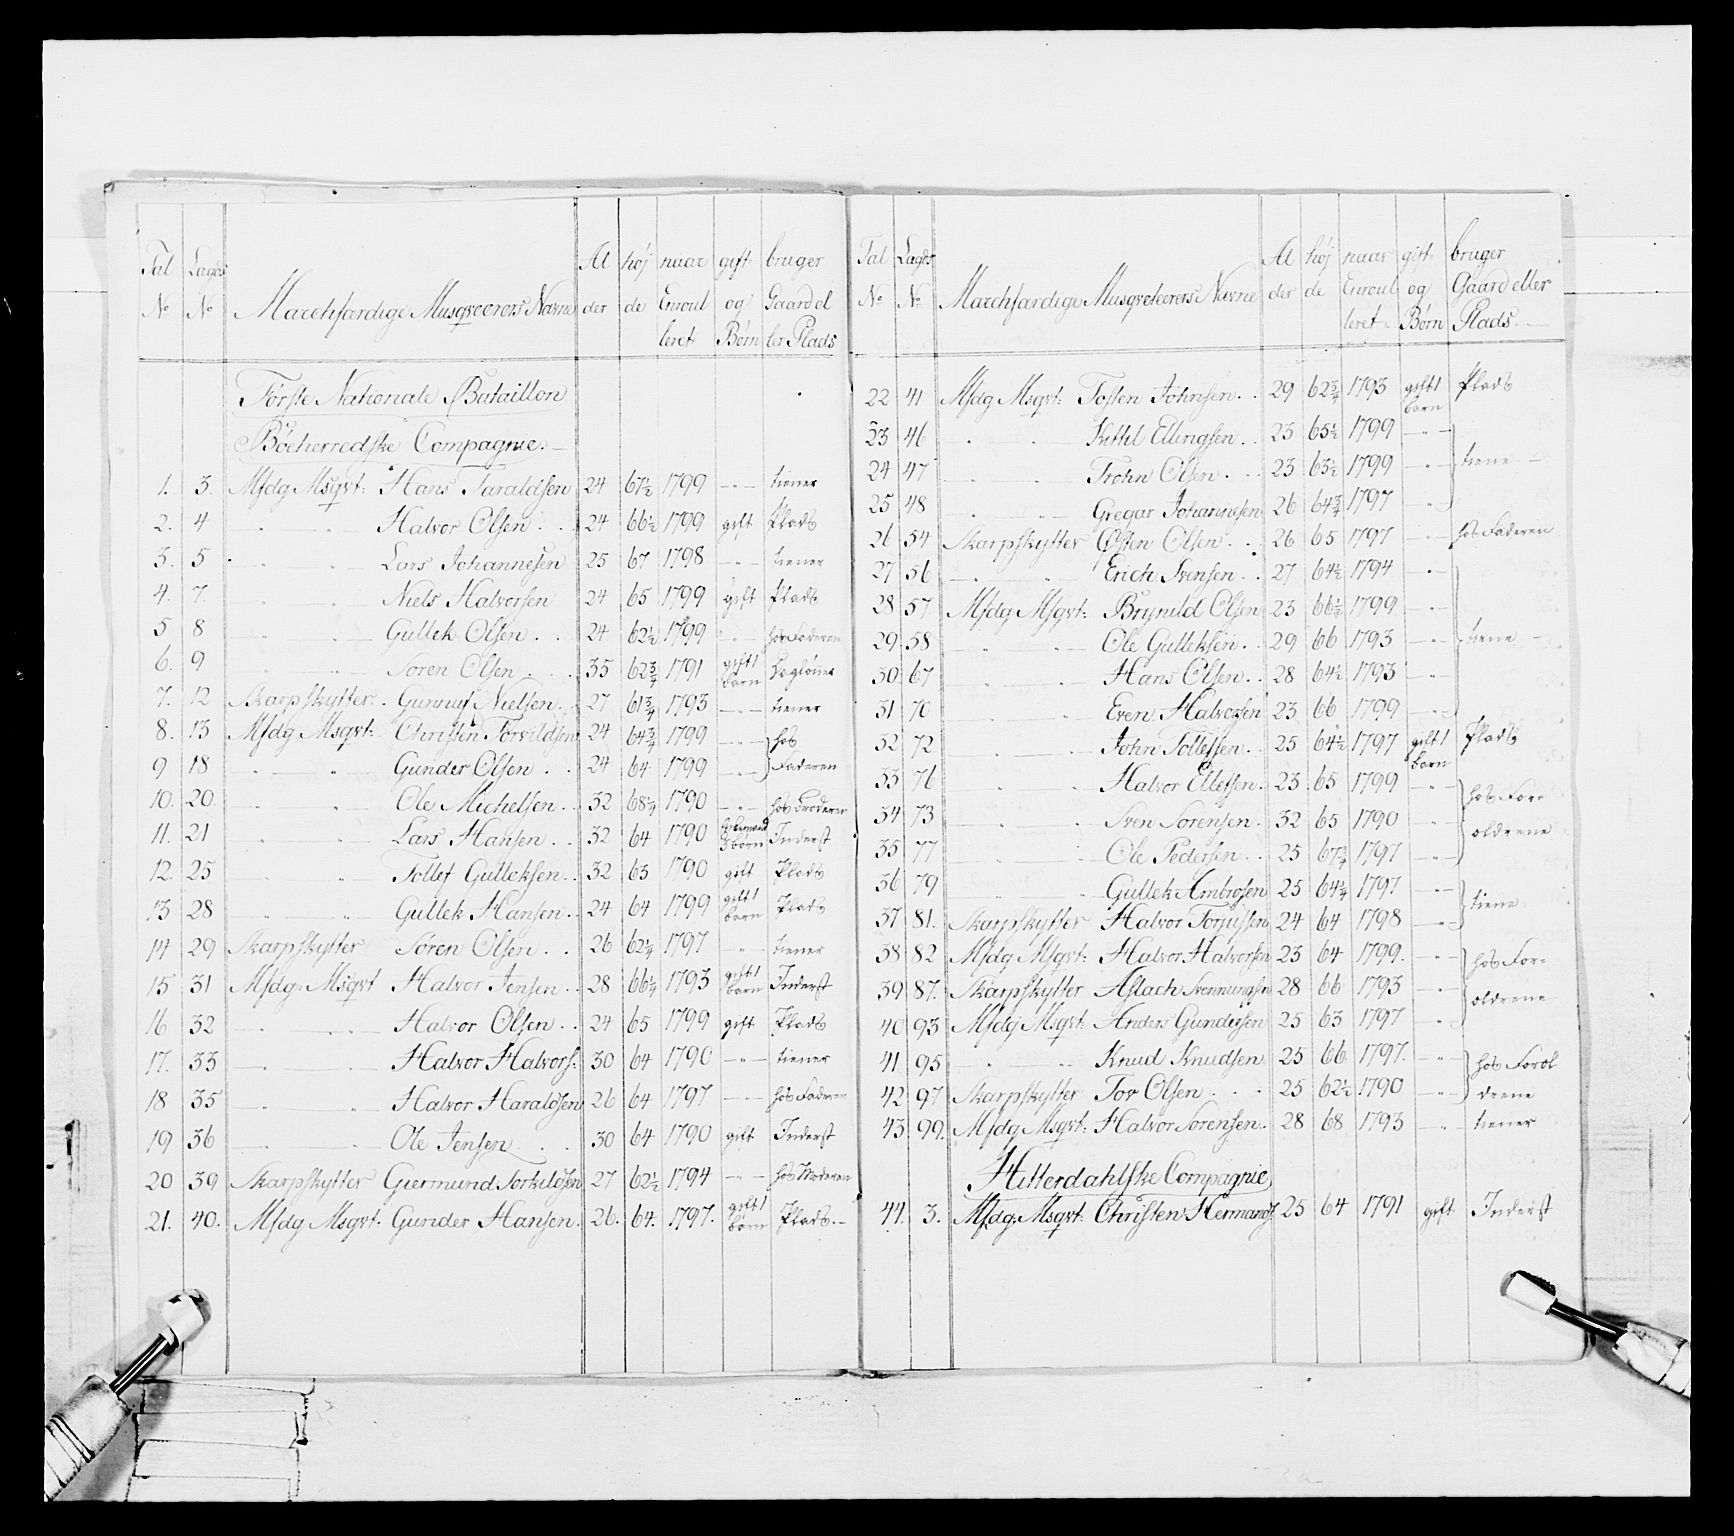 Tal No | Lagds No | Marchfærdige Musqveterers Navne | Alder | højde | naar Enroulleret | gift og Børn | bruger Gaard eller Plads
Første Nationale Bataillon
Böeherredske Compagnie.
1. | 3. | Mfdg Msqvt: Hans Taraldsen | 24 | 67½ | 1799 | — " — | tiener
2. | 4 | " " — Halvor Olsen . . | 24 | 66½ | 1799 | gift | Plads
3. | 5 | " " — Lars Johannesen | 25 | 67 | 1798 | — " — | tiener
4. | 7. | " " — Niels Halvorsen | 24 | 65 | 1799 | gift | Plads
5 | 8 | " " — Gullek Olsen . . | 24 | 62½ | 1799 | " — | hos Faderen
6. | 9 | " " — Sören Olsen . . | 35 | 62¾ | 1791 | gift 1 barn | Daglönner
7. | 12 | Skarpskytter . Gunnuf Nielsen . | 27 | 61¾ | 1793 | — " — | tiener
8. | 13 | Mfdg Msqvt: Christen Torvildsen | 24 | 64¾ | 1799 | — " — | hos
9 | 18 | — " — " — Gunder Olsen . . | 24 | 64 | 1799 | — " — | Faderen
10. | 20. | " " — Ole Michelsen . . | 32 | 68¼ | 1790 | — " — | hos Broderen
11. | 21 | " " — Lars Hansen . . | 32 | 64 | 1790 | 3 börn | Inderst
12. | 25 | " " — Tollef Gulleksen . | 32 | 63 | 1790 | gift | Plads
13 | 28 | " " — Gullek Hansen . | 24 | 64 | 1799 | gift 1 barn | Plads
14 | 29 | Skarpskytter Sören Olsen . . | 26 | 62¼ | 1797 | — " — | tiener
15 | 31 | Mfdg: Msqvt Halvor Jensen . . | 28 | 66¼ | 1793 | gift 1 barn | Inderst
16 | 32 | " " — Halvor Olsen . . | 24 | 65 | 1799 | gift | Plads
17. | 33 | — " — " — Halvor Halvors: | 30 | 64 | 1790 | — " — | tiener
18 | 35 | — " — " — Halvor Haraldsen | 26 | 64 | 1797 | — " — | hos Faderen
19 | 36 | " " — Ole Jensen . . | 30 | 64 | 1790 | gift | Inderst
20 | 39 | Skarpskytter Giermund Torkildsen | 27 | 62½ | 1794 | — " — | hos Moderen
21. | 40. | Mfdg Msqvt. Gunder Hansen. | 26. | 64. | 1797. | gift 1 barn | Plads. —
Tal No | Lagds No | Marchfærdige Musqveterers Navne | Alder | højde | naar Enroulleret | gift og Børn | bruger Gaard eller Plads.
22 | 41 | Mfdg Msqvt: Tosten Johnsen . . | 29 | 62¾ | 1793 | gift 1 barn | Plads
23 | 46 | " " — Kittil Ellingsen . . | 23 | 65½ | 1799 | — " —
24 | 47 | " " — Trohn Olsen . . | 23 | 63½ | 1799 | — " — | tiene —
25 | 48 | " " — Gregar Johannesen | 26 | 64¾ | 1797 | — " —
26 | 54 | Skarpskytter Østen Olsen . . . | 26 | 65 | 1797 | — " — | hos Faderen
27 | 56 | — " — " — Erich Svensen . . | 27 | 64½ | 1794 | — " —
28 | 57. | Mfdg Msqvt: Brynild Olsen | 23 | 66½ | 1799 | — " —
29. | 58 | " " — Ole Gulleksen . . | 29 | 66 | 1793 | — " — | tiene —
30 | 67 | " " — Hans Olsen . . | 28 | 64½ | 1793 | — " —
31 | 70 | " " — Even Halvorsen | 23 | 66 | 1799 | — " —
32 | 72 | " " — John Tollefsen . . | 25 | 64½ | 1797 | gift 1 barn | Plads
33 | 76 | " " — Halvor Ellefsen . | 23 | 65 | 1799 | — " — | hos For=
34 | 73 | " " — Sven Sörensen . | 32 | 65 | 1790 | — " — | ældrene
35 | 77 | " " — Ole Pedersen . . | 25 | 67¾ | 1797 | — " —
36 | 79 | " " — Gullek Ambrosen | 25 | 64¼ | 1797 | — " — | tiene
37 | 81. | Skarpskytter Halvor Torjussen | 24 | 64 | 1798 | — " —
38 | 82 | Mfdg Msqvt: Halvor Halvorsen | 23 | 64 | 1799. | — " — | hos For=
39 | 87. | Skarpskytter Aslach Svennungsen | 28 | 66 | 1793 | — " — | ældrene
40 | 93 | Mfdg Msqvt: Anders Gundersen | 25 | 63 | 1797 | — " —
41. | 95 | — " — " — Knud Knudsen. | 25 | 66 | 1797. | — " — | hos Foræl
42 | 97 | Skarpskytter Tov Olsen . . . | 25 | 62½ | 1790 | — " — | drene
43 | 99. | Mfdg Msqvt: Halvor Sörensen . | 28 | 68 | 1793 | — " — | tiener
Hitterdahlske Compagnie
44. | 3. | Mfdg: Msqvt: Christen Hermands: | 25 | 64 | 1791 | gift | Inderst